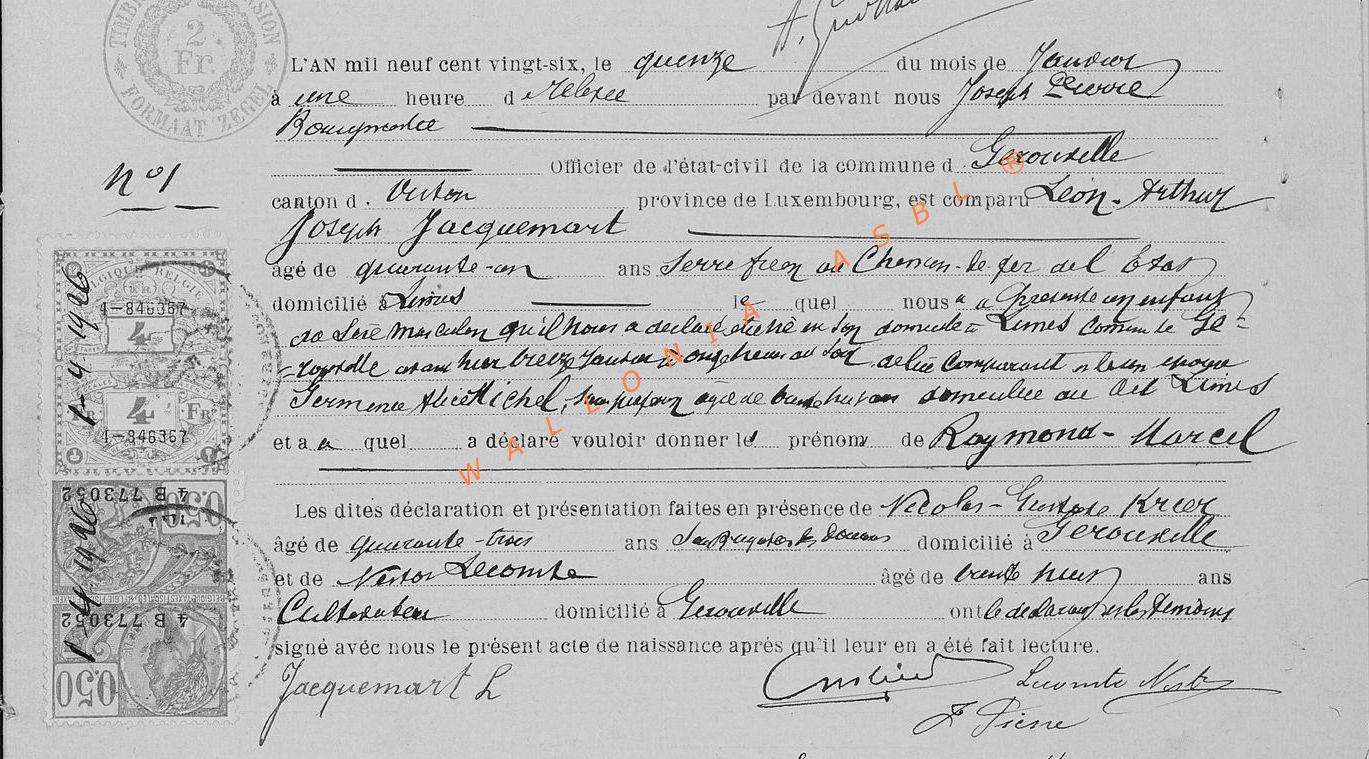 TIMBRE DIMENSION
2
Fr.
FORMAAT ZEGEL
L'AN mil neuf cent vingt-six, le quinze du mois de Janvier
à une heure d Relevée par devant nous Joseph Pierre
Officier de l'état-civil de la commune d . Gerouville
N° 1
canton d . Virton province de Luxembourg, est comparu Léon-Arthur
Joseph Jacquemart
âgé de quarante-un ans Serre frein au Chemin-de fer de l'Etat
domicilié à Limes le quel nous a présenté un enfant
de sexe masculin qu'il nous a déclaré être né en son domicile à Limes Commune de Gé-
rouville avant hier treize Janvier à onze heures du soir de lui comparant et de son épouse
Germence Alice Michel, sans profession âgée de trente huit ans domiciliée au dit Limes
et a a quel a déclaré vouloir donner les prénoms de Raymond-Marcel
Les dites déclaration et présentation faites en présence de Nicolas-Gustave Krier
âgé de quarante-trois ans domicilié à Gerouville
et de Nestor Lecomte âgé de trente neuf ans
Cultivateur domicilié à Gerouville ont le déclarant et les témoins
signé avec nous le présent acte de naissance après qu'il leur en a été fait lecture.
Jacquemart L
Lecomte Nestor
J Pierre
BELGIQUE BELGIË
FR
4-846367
4
4 FR
4-846367
1-4-1926
4 B 773052
0,50
1-4-1926
4 B 773052
0,50
WALLONIA ASBL ®